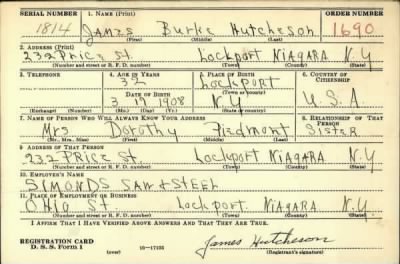 SERIAL NUMBER 1. NAME (Print) ORDER NUMBER
1814 James Burke Hutcheson 1690
(First) (Middle) (Last)
2. ADDRESS (Print)
232 Price St Lockport Niagara N.Y
(Number and street or R. F. D. number) (Town) (County) (State)
3. TELEPHONE 4. AGE IN YEARS 5. PLACE OF BIRTH 6. COUNTRY OF CITIZENSHIP
32 Lockport
DATE OF BIRTH (Town or county)
3 1908 N.Y U.S.A
(Exchange) (Number) (Mo.) (Day) (Yr.) (State or country)
7. NAME OF PERSON WHO WILL ALWAYS KNOW YOUR ADDRESS 8. RELATIONSHIP OF THAT PERSON
Mrs Dorothy Piedmont Sister
(Mr., Mrs., Miss) (First) (Middle) (Last)
9. ADDRESS OF THAT PERSON
232 Price St Lockport Niagara N.Y
(Number and street or R. F. D. number) (Town) (County) (State)
10. EMPLOYER'S NAME
SIMONDS SAW & STEEL
11. PLACE OF EMPLOYMENT OR BUSINESS
Ohio St. Lockport Niagara N.Y
(Number and street or R. F. D. number) (Town) (County) (State)
I AFFIRM THAT I HAVE VERIFIED ABOVE ANSWERS AND THAT THEY ARE TRUE.
REGISTRATION CARD
D. S. S. Form 1 (over) 16—17105 James Hutcheson
(Registrant's signature)